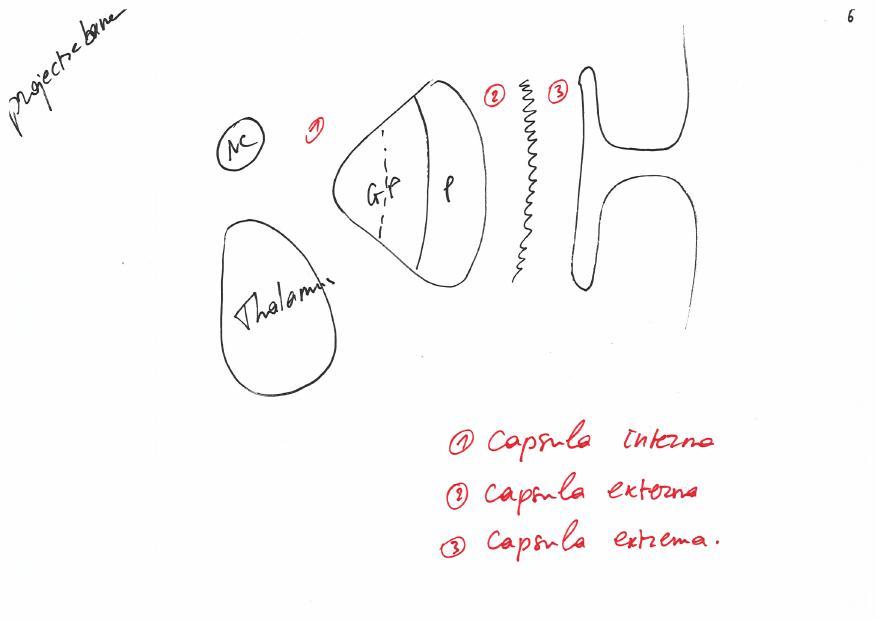 6
projectiebane
NC
1
G.P
P
2
3
Thalamus
1 Capsula interna
2 Capsula externa
3 Capsula extrema.